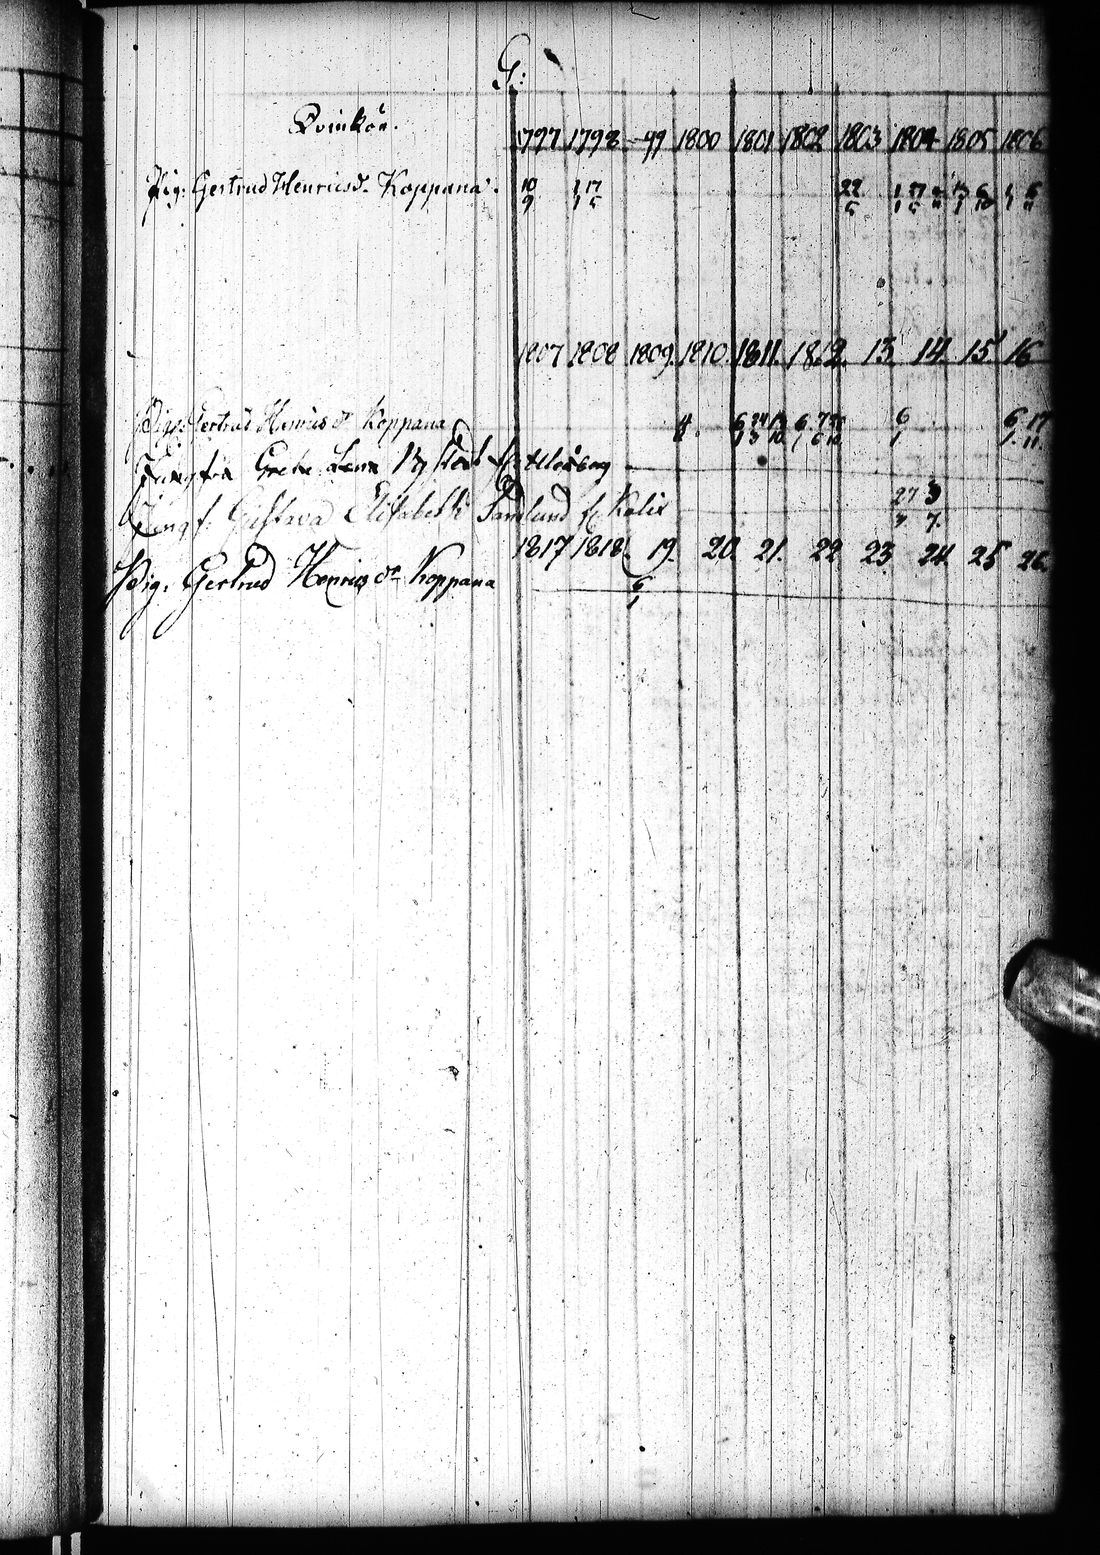 G:
Qvinkön.
1797 1798 -99 1800 1801 1802 1803 1804 1805 1806
Pig: Gertrud Henricsd:r Koppana. 10/9 1/1 17/5 22/5 1/1 17/5 6/10 1/1 6/11
1807 1808 1809. 1810. 1811. 1812. 13. 14. 15 16
Pig: Gertrud Henricsd:r Koppana 6/1 24/3 13/10 6/1 6/1 6/1 17/11
Jungfru Greta Lena
Jungf: Gustava Elisabeth Sandlund fr Kalix 27 3/7
1817 1818 19. 20. 21. 22 23 24. 25 26.
Pig. Gertrud Henricsd:r Koppana 6/1